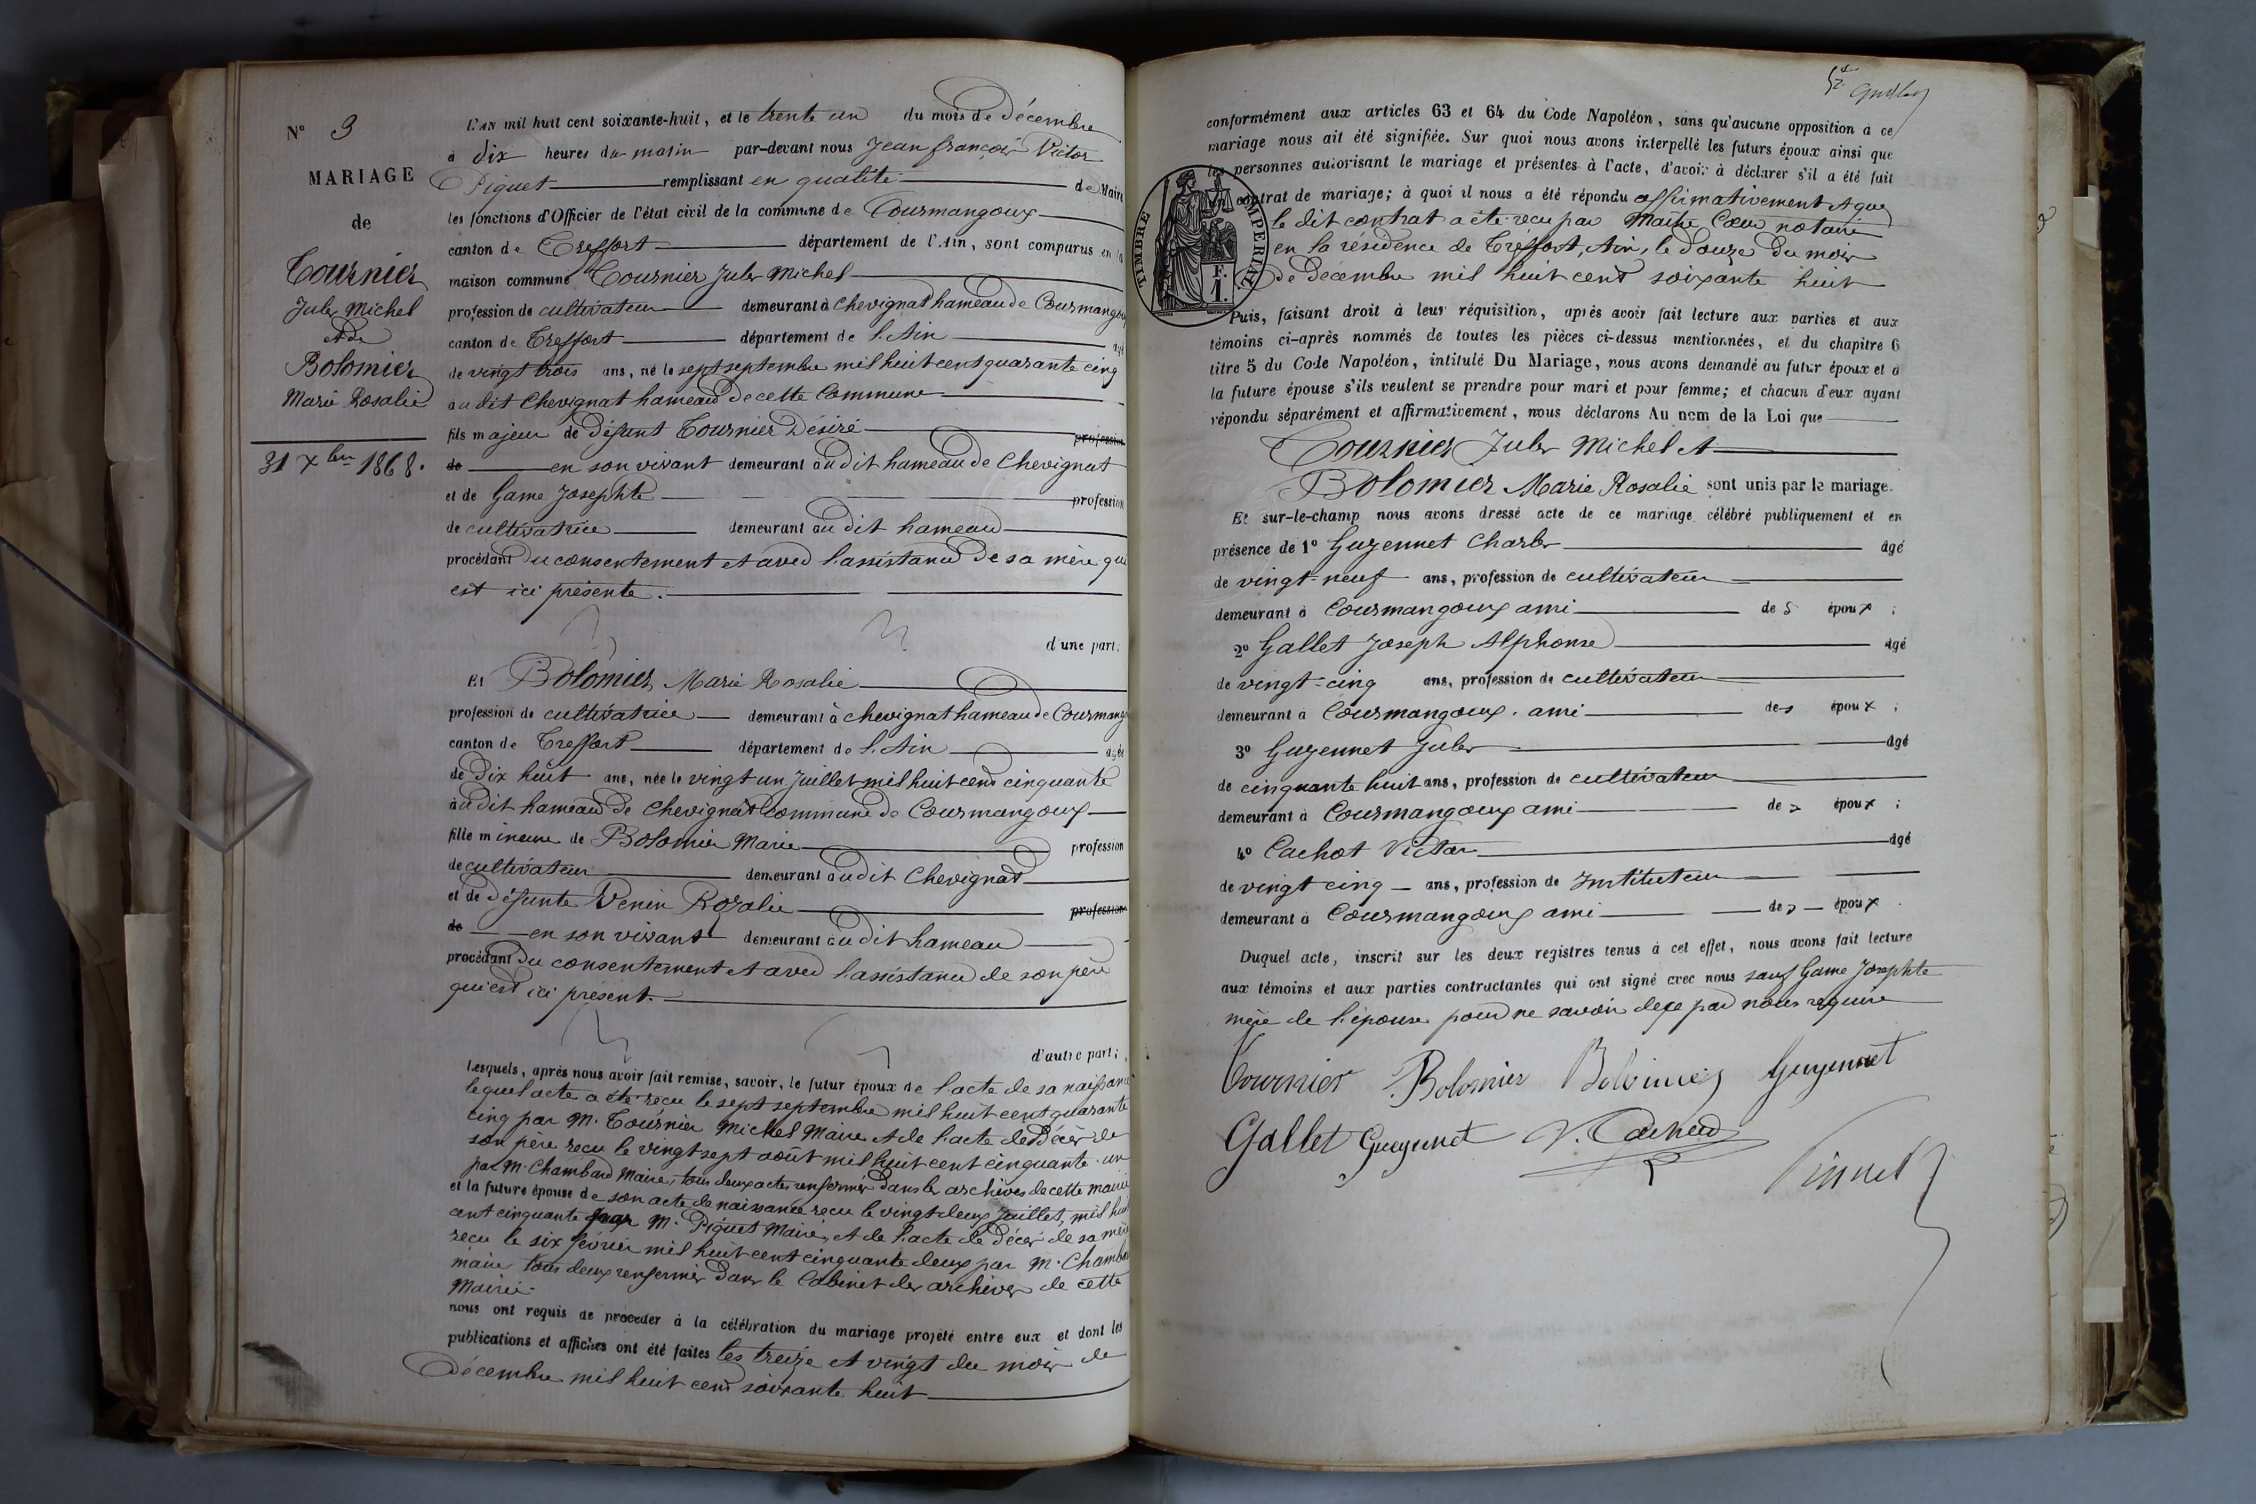 N° 3
MARIAGE
de
Tournier
Jules Michel
Et de
Bolomier
Marie Rosalie
31 Xbre 1868.
L'AN mil huit cent soixante-huit, et le trente un du mois de décembre
à dix heures du matin par-devant nous Jean françois Victor
Piguet remplissant en qualité de Maire
les fonctions d'Officier de l'état civil de la commune de Courmangoux
canton de Treffort département de l'Ain, sont comparus en la
maison commune Tournier Jules Michel
profession de cultivateur demeurant à Chevignat hameau de Courmangoux
canton de Treffort département de l'Ain âgé
de vingt trois ans, né le sept septembre mil huit cent quarante cinq
au dit Chevignat hameau de cette Commune
fils majeur de défunt Tournier Désiré profession
de en son vivant demeurant au dit hameau de Chevignat
et de Game Josephte profession
de cultivatrice demeurant au dit hameau
procédant du consentement et avec l'assistance de sa mère qui
est ici présente.
d'une part.
Et Bolomier Marie Rosalie
profession de cultivatrice demeurant à Chevignat hameau de Courmang
canton de Treffort département de l'Ain âgée
de Dix huit ans, née le vingt un Juillet mil huit cent cinquante
au dit hameau de Chevignat Commune de Courmangoux
fille mineure de Bolomier Marie profession
de cultivateur demeurant au dit Chevignat
et de défunte Venin Rozalie profession
de en son vivant demeurant au dit hameau
procédant du consentement et avec l'assistance de son père
qui est ici présent.
d'autre part;
Lesquels, après nous avoir fait remise, savoir, le futur époux de l'acte de sa naissance
lequel acte a été recu le sept septembre mil huit cent quarante
cinq par M. Tournier Michel Maire et de l'acte de Décès de
son père recu le vingt sept août mil huit cent cinquante un
par M. Chambard Maire, tous deux actes renfermés dans les archives de cette mairie
et la future épouse de son acte de naissance recu le vingt deux Juillet, mil huit
cent cinquante par M. Piguet Maire, et de l'acte de Décès de sa mère
recu le six février mil huit cent cinquante deux par M. Chambard
maire tous deux renfermés dans le Cabinet des archives de cette
Mairie.
nous ont requis de procéder à la célébration du mariage projeté entre eux et dont les
publications et affiches ont été faites les treize et vingt du mois de
décembre mil huit cent soixante huit
conformément aux articles 63 et 64 du Code Napoléon, sans qu'aucune opposition à ce
mariage nous ait été signifiée. Sur quoi nous avons interpellé les futurs époux ainsi que
les personnes autorisant le mariage et présentes à l'acte, d'avoir à déclarer s'il a été fait
contrat de mariage; à quoi il nous a été répondu affirmativement et que
le dit contrat a été recu par Maître Cœur notaire
en la résidence de Tréffort, Ain, le douze du mois
de décembre mil huit cent soixante huit
TIMBRE IMPERIAL
F.
1.
Puis, faisant droit à leur réquisition, après avoir fait lecture aux parties et aux
témoins ci-après nommés de toutes les pièces ci-dessus mentionnées, et du chapitre 6
titre 5 du Code Napoléon, intitulé Du Mariage, nous avons demandé au futur époux et à
la future épouse s'ils veulent se prendre pour mari et pour femme; et chacun d'eux ayant
répondu séparément et affirmativement, nous déclarons Au nom de la Loi que
Tournier Jules Michel et
Bolomier Marie Rosalie sont unis par le mariage.
Et sur-le-champ nous avons dressé acte de ce mariage célébré publiquement et en
présence de 1° Guyennet Charles âgé
de vingt-neuf ans, profession de cultivateur
demeurant à Courmangoux ami des époux;
2° Gallet Joseph Alphonse âgé
de vingt-cinq ans, profession de cultivateur
demeurant à Courmangoux. ami des époux;
3° Guyennet Jules âgé
de cinquante huit ans, profession de cultivateur
demeurant à Courmangoux ami des époux;
4° Cachot Victor âgé
de vingt cinq ans, profession de Instituteur
demeurant à Courmangoux ami des époux.
Duquel acte, inscrit sur les deux registres tenus à cet effet, nous avons fait lecture
aux témoins et aux parties contractantes qui ont signé avec nous sauf Game Josephte
mère de l'épouse pour ne savoir de ce par nous requise
Tournier Bolomier Bolomier Guyennet
Gallet Gueyunet V. Cachod